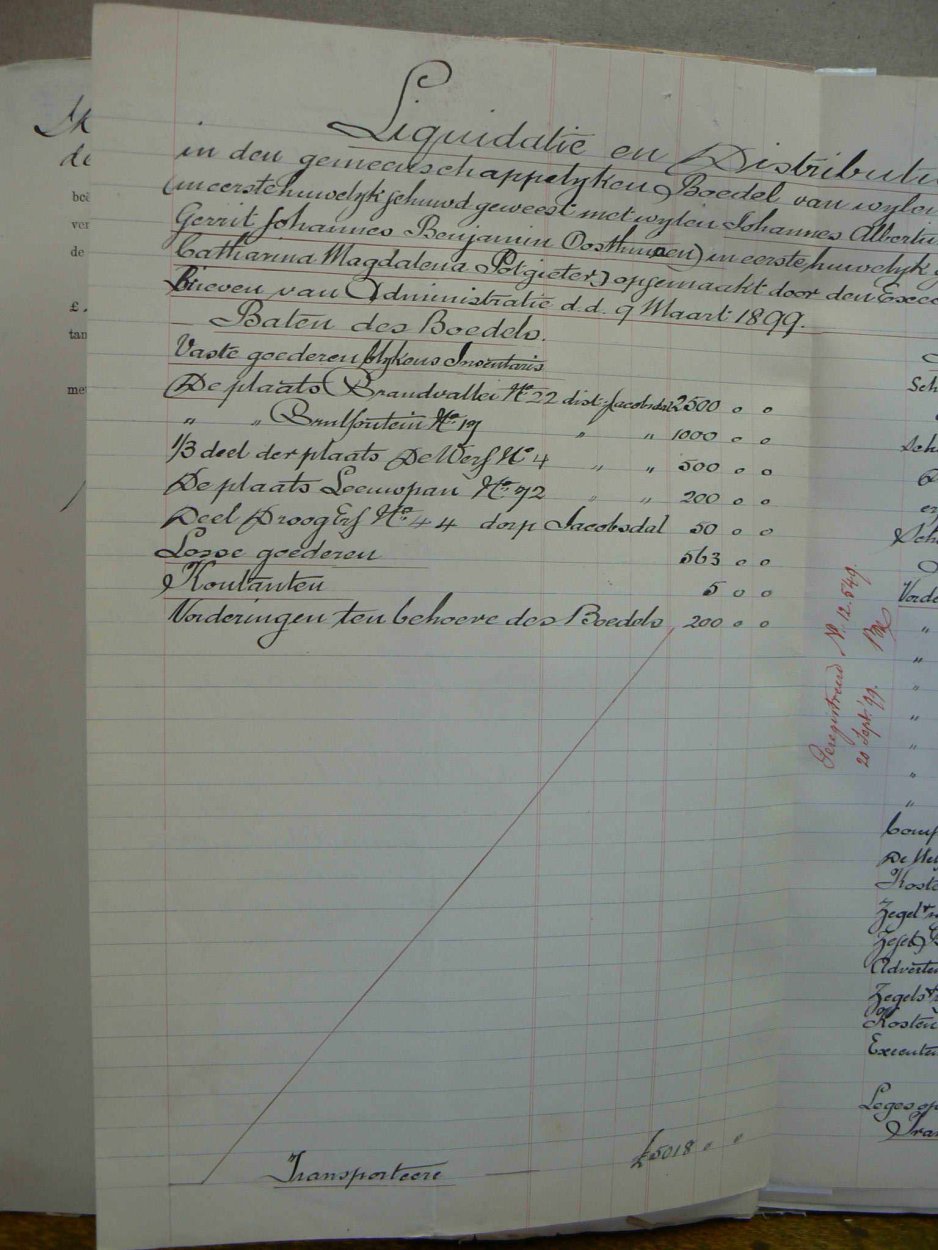 Liquidatie en Distributi
in den gemeenschappelyken Boedel van wylen
(in eerste huwelyk gehuwd geweest met wylen Johannes Albertu
Gerrit Johannes Benjamin Oosthuizen) in eerste huwelyk g
Catharina Magdalena Potgieter) opgemaakt door den Execu
Brieven van Administratie d.d. 9 Maart 1899.
Baten des Boedels.
Vaste goederen blykens Inventaris
De plaats Brandvallei No. 22 dist. Jacobsdal 2500 0 0
" " Brulfontein No. 17 " " 1000 0 0
1/3 deel der plaats De Werf No. 4 " " 500 0 0
De plaats Leeuwpan No. 72 " " 200 0 0
Deel Droog Erf No. 44 dorp Jacobsdal 50 0 0
Losse goederen 563 0 0
Kontanten 5 0 0
Vorderingen ten behoeve des Boedels 200 0 0
Transporteere £5018 " "
Geregistreerd No. 12.549.
20 Sept. '99.
de
boe
ver
de
£
tan
me
Sch
Sch
er
Sch
Vorde
"
"
"
"
"
"
"
Comp
De
Koste
Zegel
Zegel
Adverten
Zegels
Kosten
Executeu
Leges op
Tran